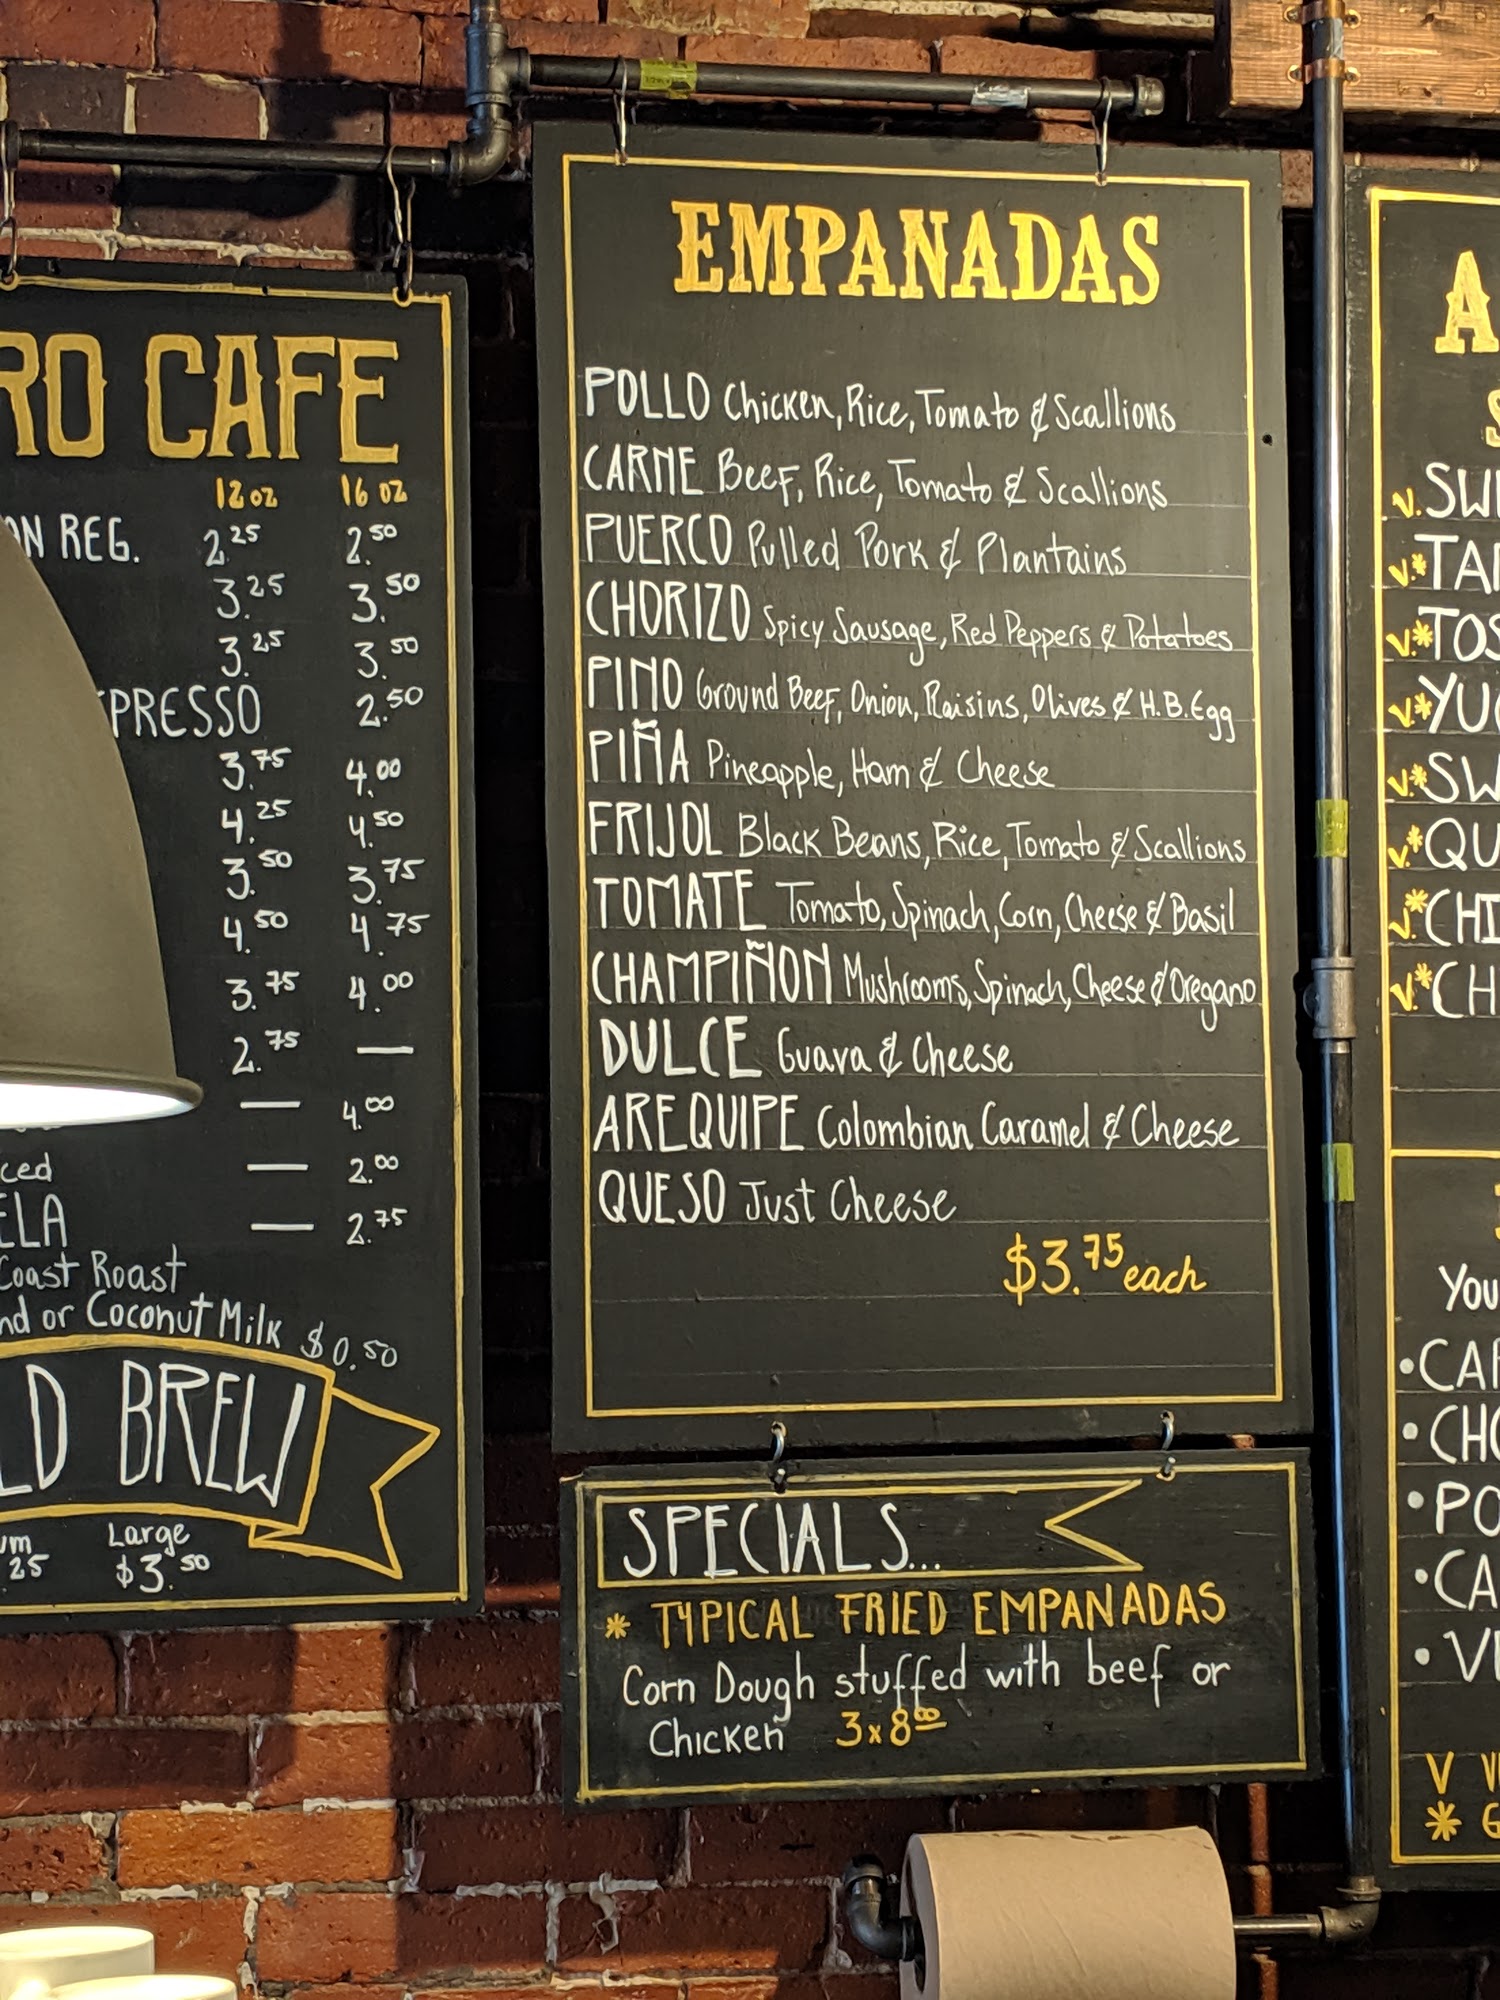 RO CAFE
12 oz 16 oz
ON REG. 2.25 2.50
3.25 3.50
3.25 3.50
PRESSO 2.50
3.75 4.00
4.25 4.50
3.50 3.75
4.50 4.75
3.75 4.00
2.75 —
— 4.00
ced — 2.00
ELA — 2.75
Coast Roast
nd or Coconut Milk $0.50
LD BREW
um Large
.25 $3.50
EMPANADAS
POLLO Chicken, Rice, Tomato & Scallions
CARNE Beef, Rice, Tomato & Scallions
PUERCO Pulled Pork & Plantains
CHORIZO Spicy Sausage, Red Peppers & Potatoes
PINO Ground Beef, Onion, Raisins, Olives & H.B. Egg
PIÑA Pineapple, Ham & Cheese
FRIJOL Black Beans, Rice, Tomato & Scallions
TOMATE Tomato, Spinach, Corn, Cheese & Basil
CHAMPIÑON Mushrooms, Spinach, Cheese & Oregano
DULCE Guava & Cheese
AREQUIPE Colombian Caramel & Cheese
QUESO Just Cheese
$3.75 each
SPECIALS...
* TYPICAL FRIED EMPANADAS
Corn Dough stuffed with beef or
Chicken 3x8.00
A
S
V. SW
V.* TA
V.* TOS
V.* YU
V.* SW
V.* QU
V.* CHI
V.* CH
You
• CA
• CHO
• PO
• CA
• VE
V V
* G